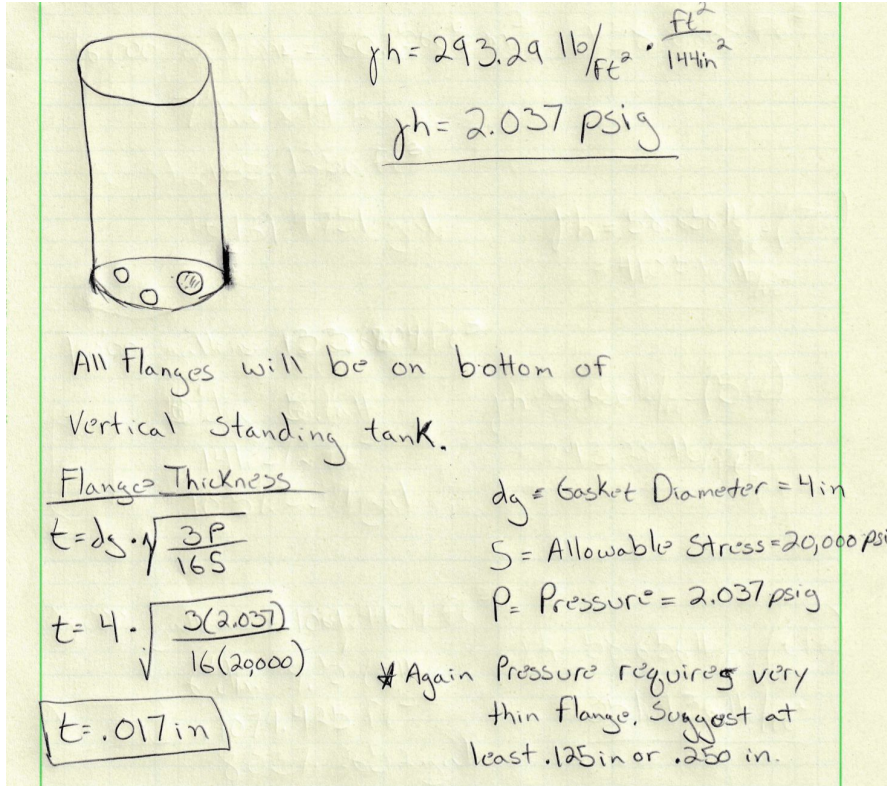 γh = 293.29 lb/ft² · ft²/144in²
γh = 2.037 psig
All Flanges will be on bottom of
Vertical Standing tank.
Flange Thickness
t = dg · √(3P/16S)
dg = Gasket Diameter = 4in
S = Allowable Stress = 20,000 psi
P = Pressure = 2.037 psig
t = 4 · √(3(2.037)/16(20,000))
* Again Pressure requires very
thin flange. Suggest at
least .125in or .250 in.
t = .017 in